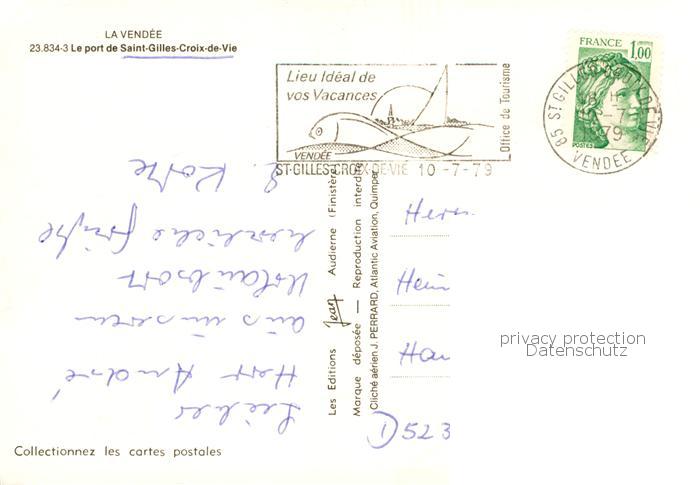 LA VENDÉE
23.834-3 Le port de Saint-Gilles-Croix-de-Vie
Lieu Idéal de
vos Vacances
VENDÉE
Office de Tourisme
ST-GILLES-CROIX-DE-VIE 10-7-79
FRANCE 1,00
POSTES
85 ST-GILLES-CROIX-DE-VIE
VENDÉE
Lieber
Herr André
aus unserem
Urlaubsort
herzliche Grüße
Les Editions Jean Audierne (Finistère)
Marque déposée — Reproduction interdite
Cliché aérien J. PERRARD, Atlantic Aviation, Quimper
Herrn
Hein
Han
D 523
privacy protection
Datenschutz
Collectionnez les cartes postales